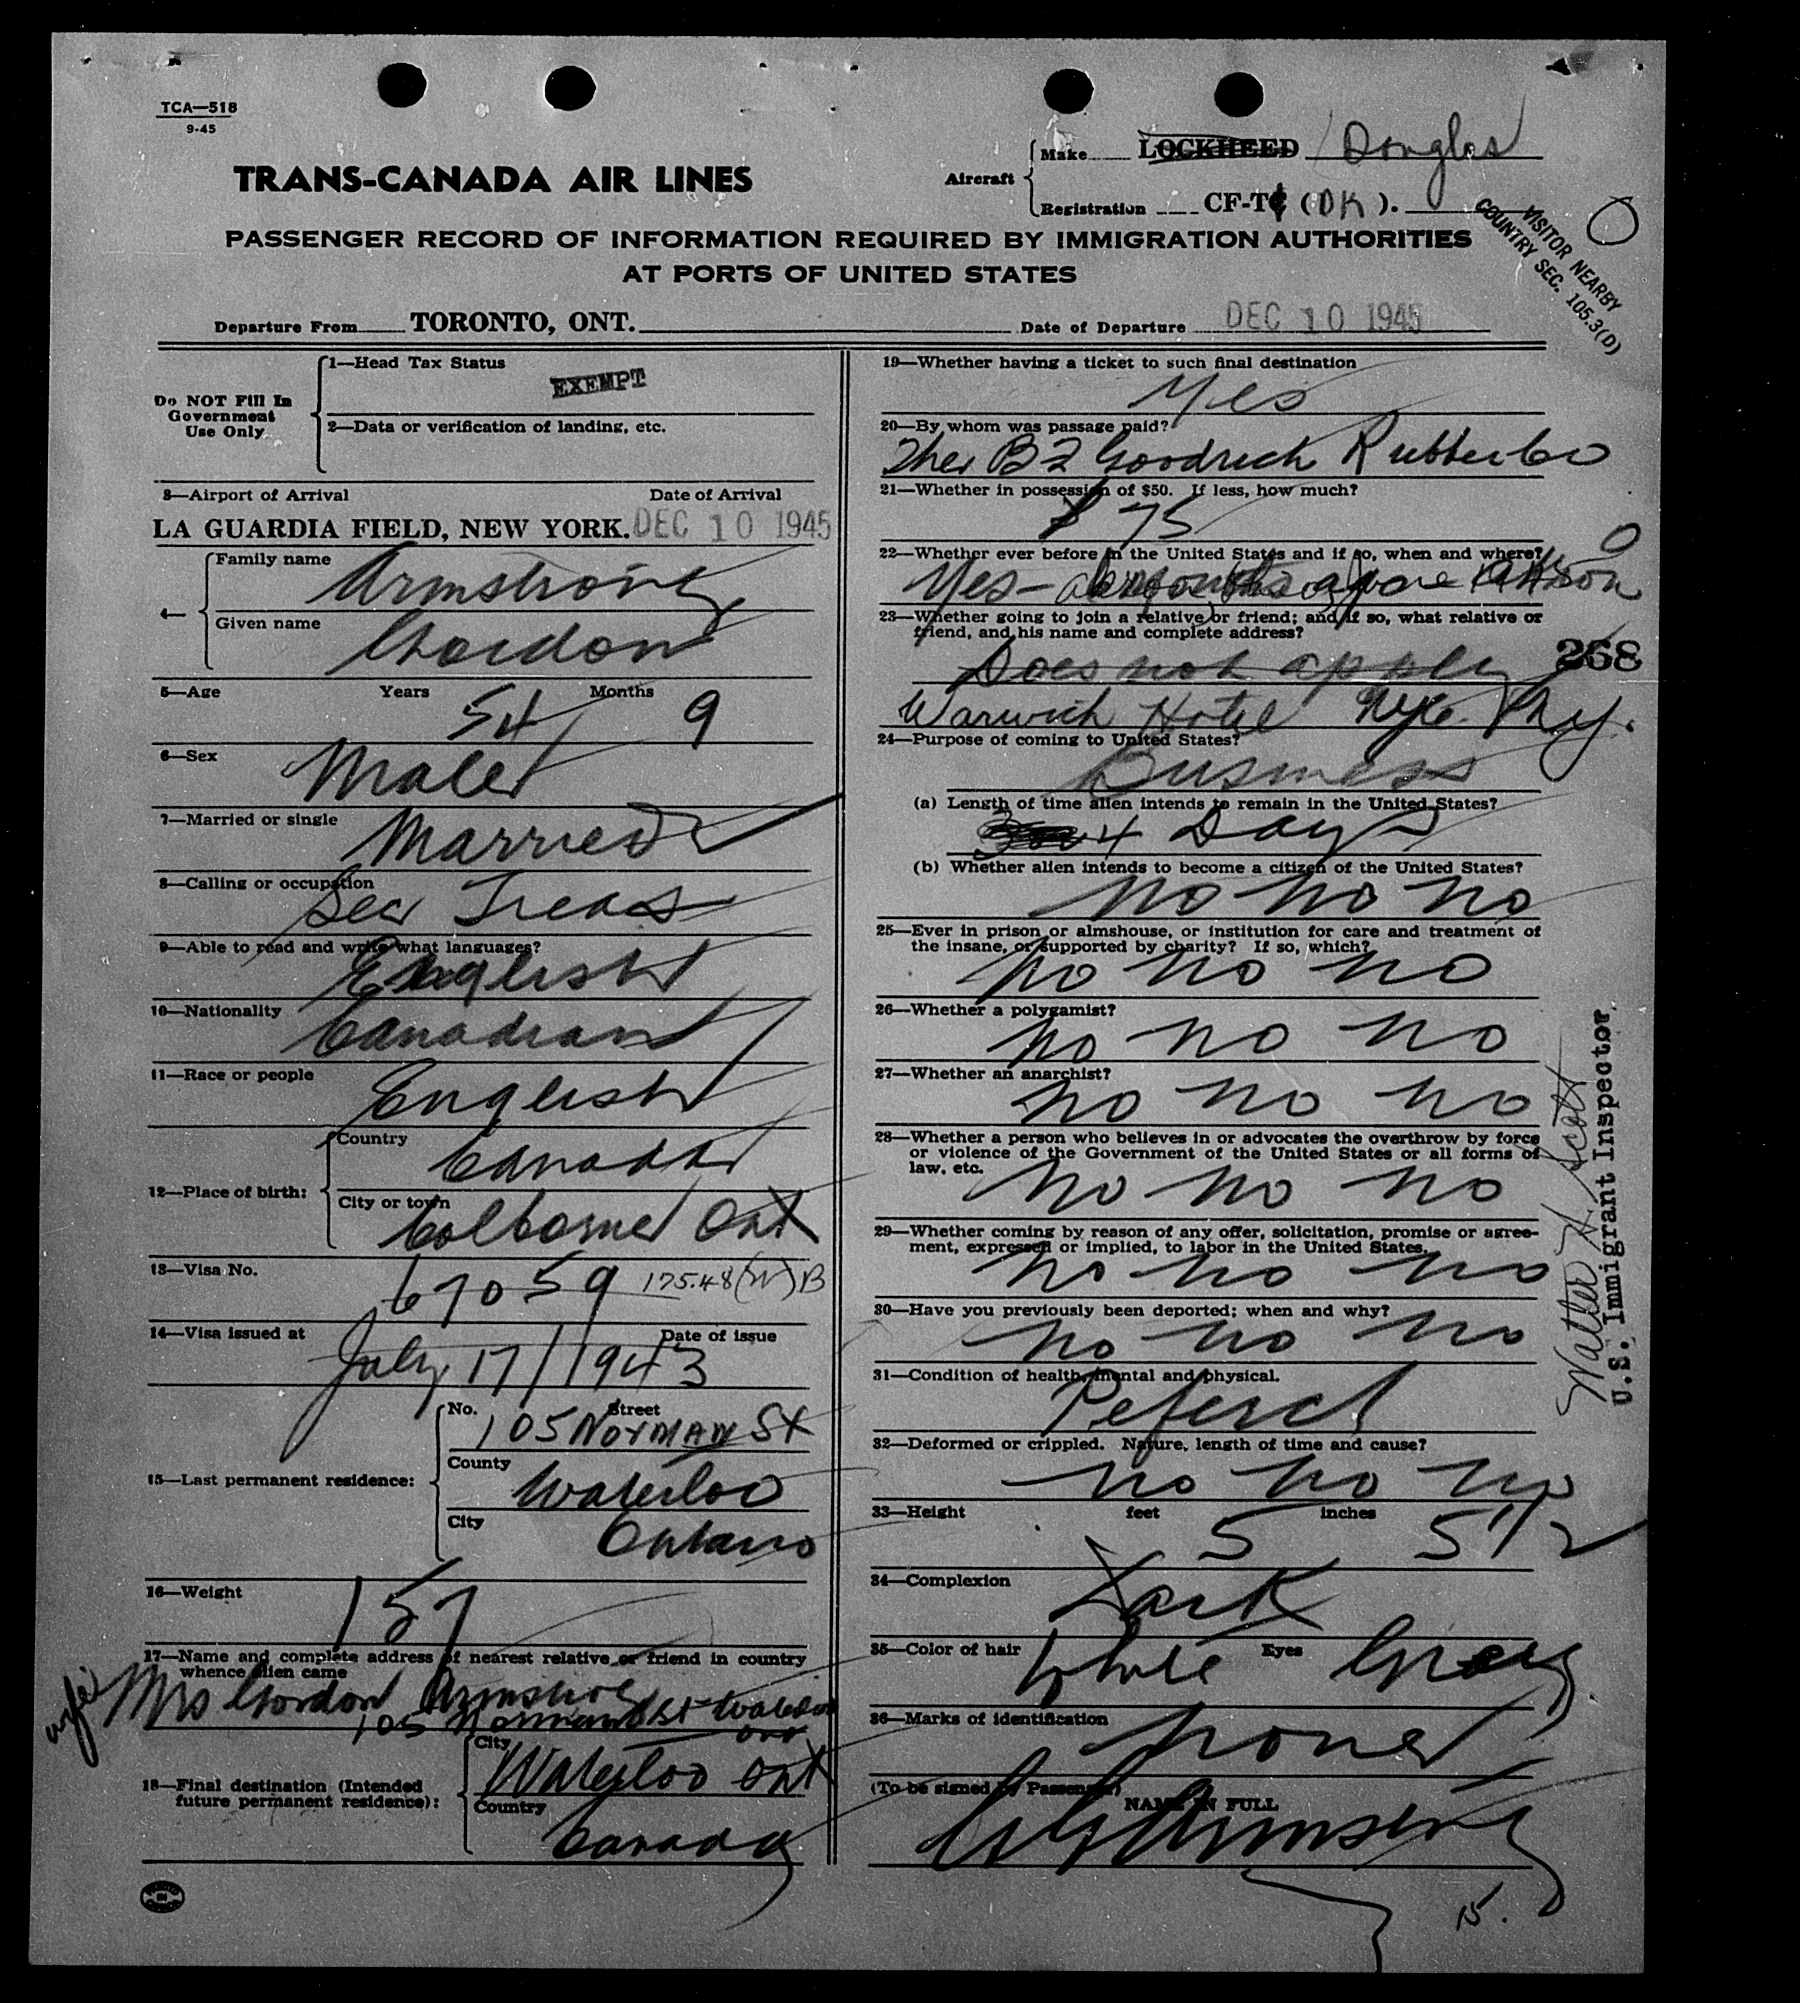 TCA—518
9-45
TRANS-CANADA AIR LINES
Aircraft
Make LOCKHEED Douglas
Registration CF-T (DK).
VISITOR NEARBY
COUNTRY SEC. 105.3(D)
PASSENGER RECORD OF INFORMATION REQUIRED BY IMMIGRATION AUTHORITIES
AT PORTS OF UNITED STATES
Departure From TORONTO, ONT. Date of Departure DEC 10 1945
Do NOT Fill In
Government
Use Only
1—Head Tax Status
EXEMPT
2—Data or verification of landing, etc.
3—Airport of Arrival Date of Arrival
LA GUARDIA FIELD, NEW YORK. DEC 10 1945
4—
Family name
Armstrong
Given name
Gordon
5—Age Years 54 Months 9
6—Sex
Male
7—Married or single
Married
8—Calling or occupation
Sec Treas
9—Able to read and write what languages?
English
10—Nationality
Canadian
11—Race or people
English
12—Place of birth:
Country
Canada
City or town
Colborne Ont
13—Visa No.
67059 175.48 ( ) B
14—Visa issued at Date of issue
July 17/1943
15—Last permanent residence:
No. Street
105 Norman St
County
Waterloo
City
Ontario
16—Weight
157
17—Name and complete address of nearest relative or friend in country
whence alien came
wife Mrs Gordon Armstrong
105 Norman St Waterloo
Ont
18—Final destination (Intended
future permanent residence):
City
Waterloo Ont
Country
Canada
19—Whether having a ticket to such final destination
Yes
20—By whom was passage paid?
The B F Goodrich Rubber Co
21—Whether in possession of $50. If less, how much?
$ 75
22—Whether ever before in the United States and if so, when and where?
Yes—
23—Whether going to join a relative or friend; and if so, what relative or
friend, and his name and complete address?
Does not apply
268
Warwick Hotel NYC. N.Y.
24—Purpose of coming to United States?
Business
(a) Length of time alien intends to remain in the United States?
4 Days
(b) Whether alien intends to become a citizen of the United States?
No No No
25—Ever in prison or almshouse, or institution for care and treatment of
the insane, or supported by charity? If so, which?
No No No
26—Whether a polygamist?
No No No
27—Whether an anarchist?
No No No
28—Whether a person who believes in or advocates the overthrow by force
or violence of the Government of the United States or all forms of
law, etc.
No No No
29—Whether coming by reason of any offer, solicitation, promise or agree-
ment, expressed or implied, to labor in the United States.
No No No
30—Have you previously been deported; when and why?
No No No
31—Condition of health, mental and physical.
Peferct
32—Deformed or crippled. Nature, length of time and cause?
No No No
33—Height feet inches
5 5 1/2
34—Complexion
Dark
35—Color of hair White Eyes Grey
36—Marks of identification
none
(To be signed by Passenger)
NAME IN FULL
Armstrong
15.
Walter H. Scott
U.S. Immigrant Inspector